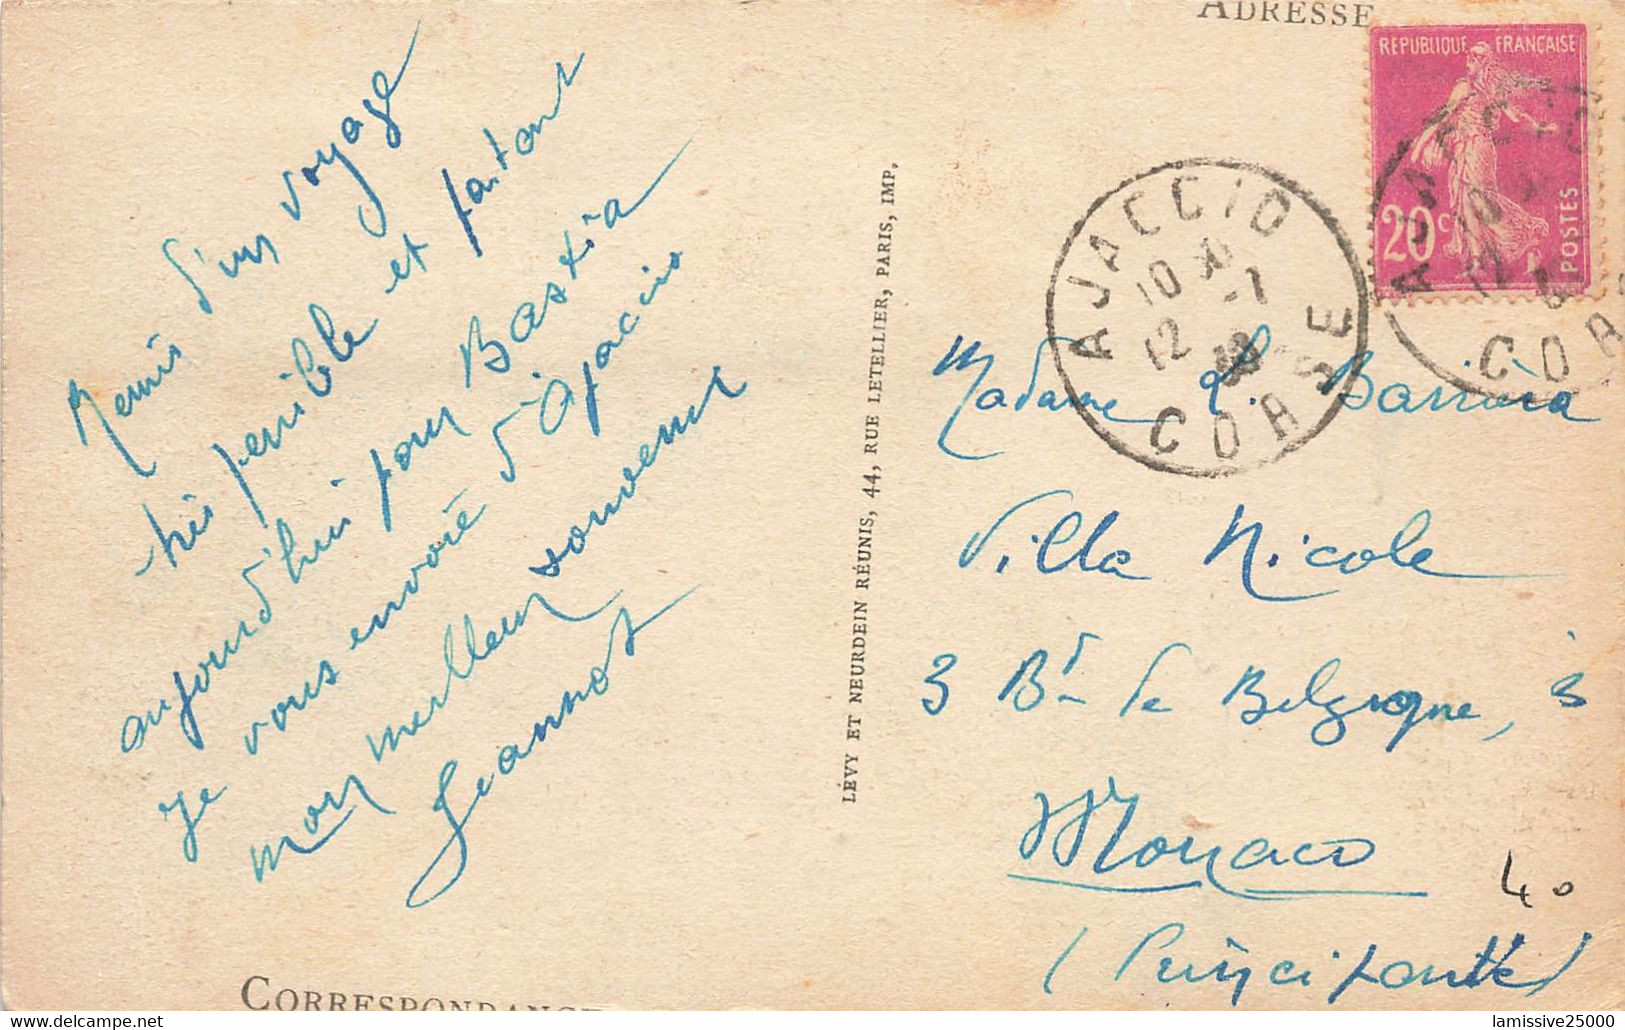 ADRESSE
REPUBLIQUE FRANÇAISE
20c
POSTES
AJACCIO
10
12 -7
CORSE
AJACCIO
12
COR
Remis d'un voyage
très penible et partant
aujourd'hui pour Bastia
je vous envoie d'Ajaccio
mon meilleur souvenir
Jeannot
LÉVY ET NEURDEIN RÉUNIS, 44, RUE LETELLIER, PARIS, IMP.
Madame L. Barriera
Villa Nicole
3 Bd de Belgique, 3
Monaco
(Principauté)
40
CORRESPONDANCE
delcampe.net
lamissive25000